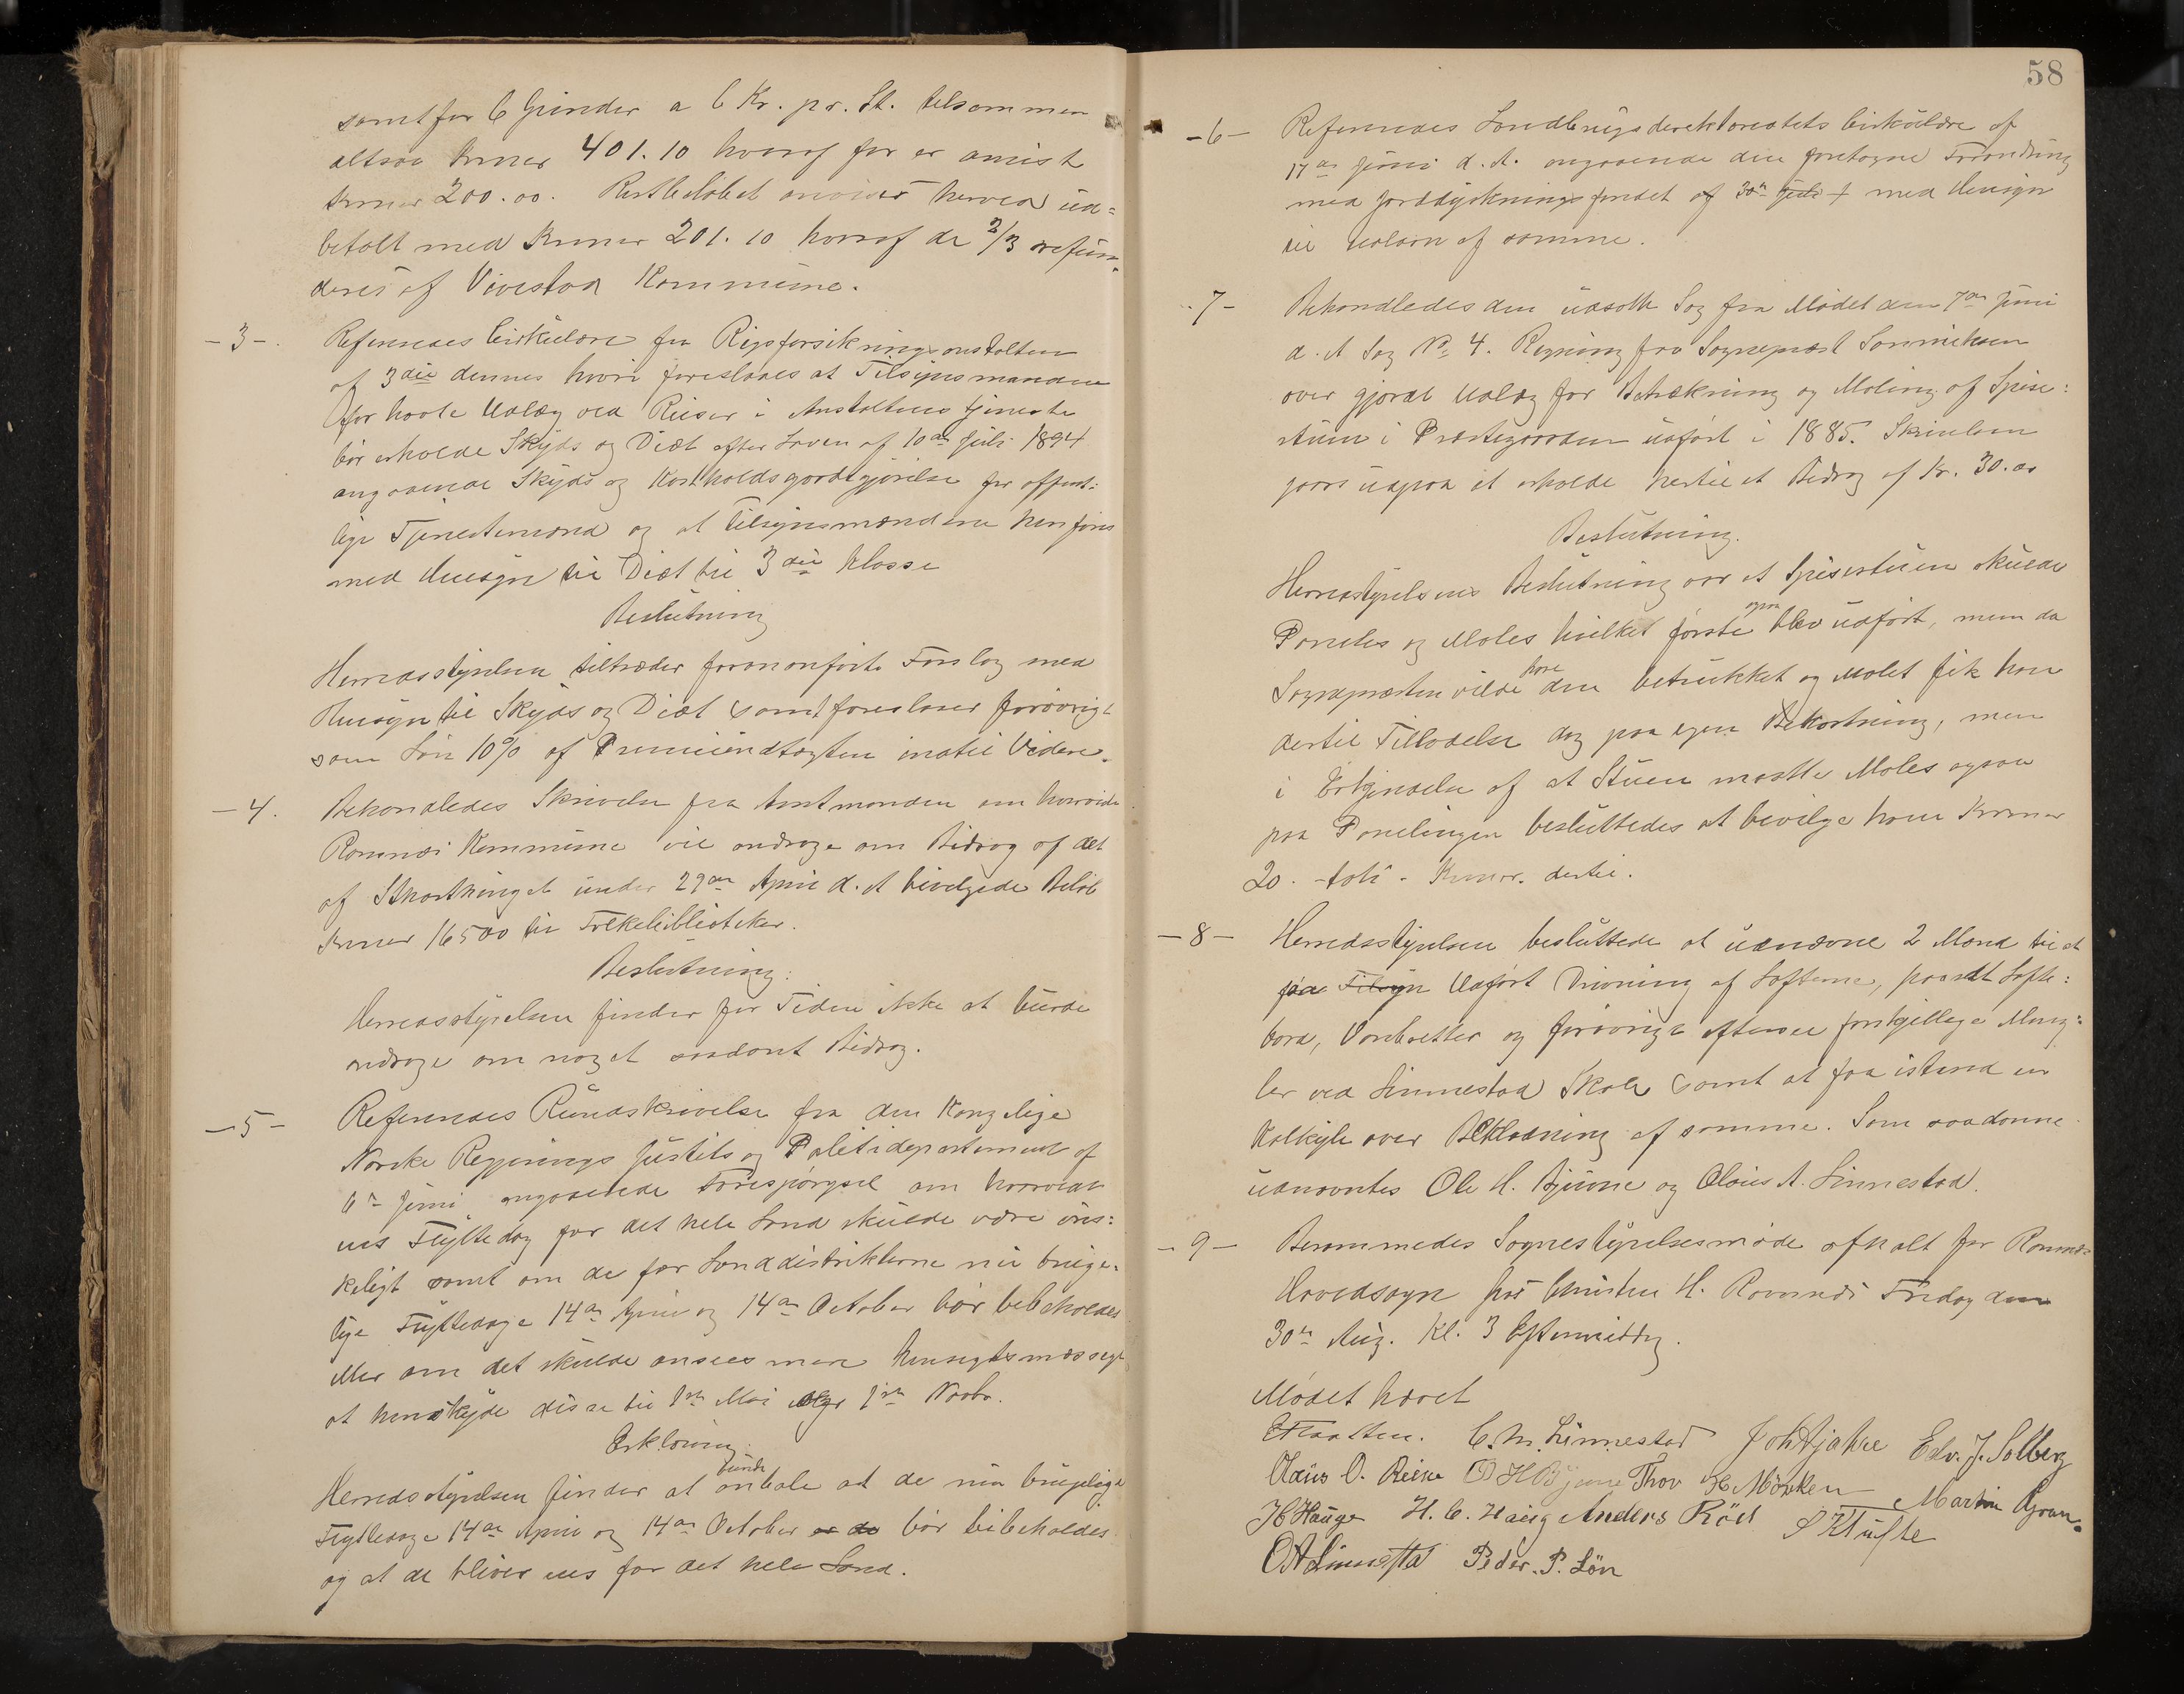 samt for 6 Grinder a 6 Kr. pr. St. tilsammen
altsaa Kroner 401.10 hvoraf før er anvist
Kroner 200.00. Restbeløbet anvises herved ud=
betalt med Kroner 201.10 hvoraf de 2/3 refun=
deres af Vivestad Kommune.
-3-. Refereredes Cirkulære fra Rigsforsikringsanstalten
af 3die dennes hvori foreslaaes at Tilsynsmændene
for havte Udlæg ved Reiser i Anstaltens tjeneste
bør erholde Skyds og Diæt efter Loven af 10de Juli 1894
angaaende Skyds og Kostholdsgodtgjørelse for offent=
lige Tjenestemænd og at Tilsynsmændene henføres
med Hensyn til Diæt til 3die Klasse
Beslutning
Herredsstyrelsen tiltræder forananførte Forslag med
Hensyn til Skyds og Diæt samt foreslaaer forøvrigt
som Løn 10% af Premieindtægten indtil Videre.
-4. Behandledes Skrivelse fra Amtmanden om hvorvidt
Ramnæs Kommune vil andrage om Bidrag af det
af Storthinget under 29de April d. A bevilgede Beløb
Kroner 16500 til Folkebibliotheker.
Beslutning:
Herredsstyrelsen finder for Tiden ikke at burde
andrage om noget saadant Bidrag.
-5- Refereredes Rundskrivelse fra den Kongelige
Norske Regjerings Justits og Politidepartement af
6te Juni angaaende Forespørgsel om hvorvidt
ens Flyttedag for det hele Land skulde være øns=
keligt samt om de for Landdistrikterne nu brige=
lige Flyttedage 14de April og 14de October bør bibeholdes
eller om det skulde ansees mere hensigtsmæssigt
at henskyde disse til 1ste Mai og 1ste Novbr.
Erklæring.
Herredsstyrelsen finder at burde anbale at de nu brugelige
Flyttedage 14de April og 14de October er de bør bibeholdes
og at de bliver ens for det hele Land.
58
-6- Refereredes Landbrugsdirektoratets Cirkulære af
17de Juni d. A. angaaende den foretagne Forandring
med Jorddyrkningsfondet af 30te Juli f. med Hensyn
til Udlaan af samme.
-7- Behandledes den udsatte Sag fra Mødet den 7de Juni
d. A Sag No 4. Regning fra Sognepræst Sønnichsen
over gjorde Udlæg for Betrækning og Maling af Spise=
stuen i Præstegaarden udført i 1885. Skrivelsen
gaar udpaa at erholde hertil et Bidrag af Kr. 30.00
Beslutning.
Herredsstyrelsens Beslutning var at Spisestuen skulde
Paneles og Males hvilket første ogsaa blev udført, men da
Sognepræsten vilde have den betrukket og Malet fik han
dertil Tilladelse dog paa egen Bekostning, men
i Erkjendelse af at Stuen maatte Males ogsaa
paa Panelingen besluttedes at bevilge ham Kroner
20. -toti- Kroner. dertil.
-8- Herredsstyrelsen besluttede at udnævne 2 Mænd til at
paa Tilsyn Udført Drivning af Lofterne, paasat Lofte=
bord, Vandbretter og forøvrigt eftersee forskjellige Mang=
ler ved Linnestad Skole samt at faa istand en
Kalkyle over Beklædning af samme. Som saadanne
udnævntes Ole H. Bjune og Olaus A. Linnestad.
-9- Berammedes Sognestyrelsesmøde afholt for Ramnæs
Hovedsogn hos Christen H. Ramnæs Fredag den
30te Aug. Kl. 3 Eftermiddag.
Mødet hævet
C. M. Linnestad Edv. J. Solberg
Olaus O. Reine O H Bjune Thor H. Mörken Martin Gran.
H Hauge H. C. Haug Anders Röd S Klufte
O A Linnestad Peder. P. Lön